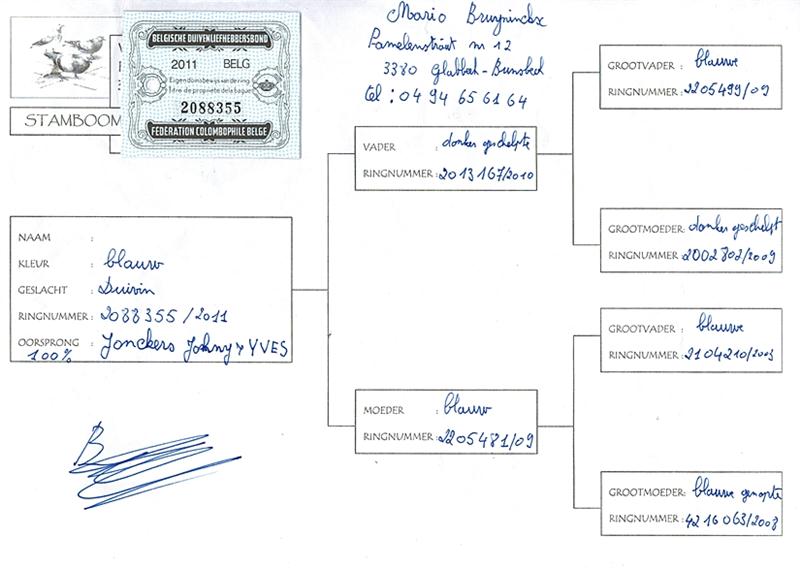 BELGISCHE DUIVENLIEFHEBBERSBOND
2011 BELG
Eigendomsbewijs van de ring
Titre de propriété de la bague
2088355
FÉDÉRATION COLOMBOPHILE BELGE
STAMBOOM
Mario Bruyninckx
Pamelenstraat nr 12
3380 Glabbeek-Bunsbeek
tel : 04 94 65 61 64
NAAM :
KLEUR : blauw
GESLACHT : Duivin
RINGNUMMER : 2088355/2011
OORSPRONG : Jonckers Johny & YVES
100%
VADER : donker geschelpte
RINGNUMMER : 2013167/2010
MOEDER : blauw
RINGNUMMER : 2205481/09
GROOTVADER : blauwe
RINGNUMMER : 2205499/09
GROOTMOEDER: donker geschelpt
RINGNUMMER : 2002802/2009
GROOTVADER : blauwe
RINGNUMMER : 2104210/2003
GROOTMOEDER: blauwe genopte
RINGNUMMER : 4216063/2008